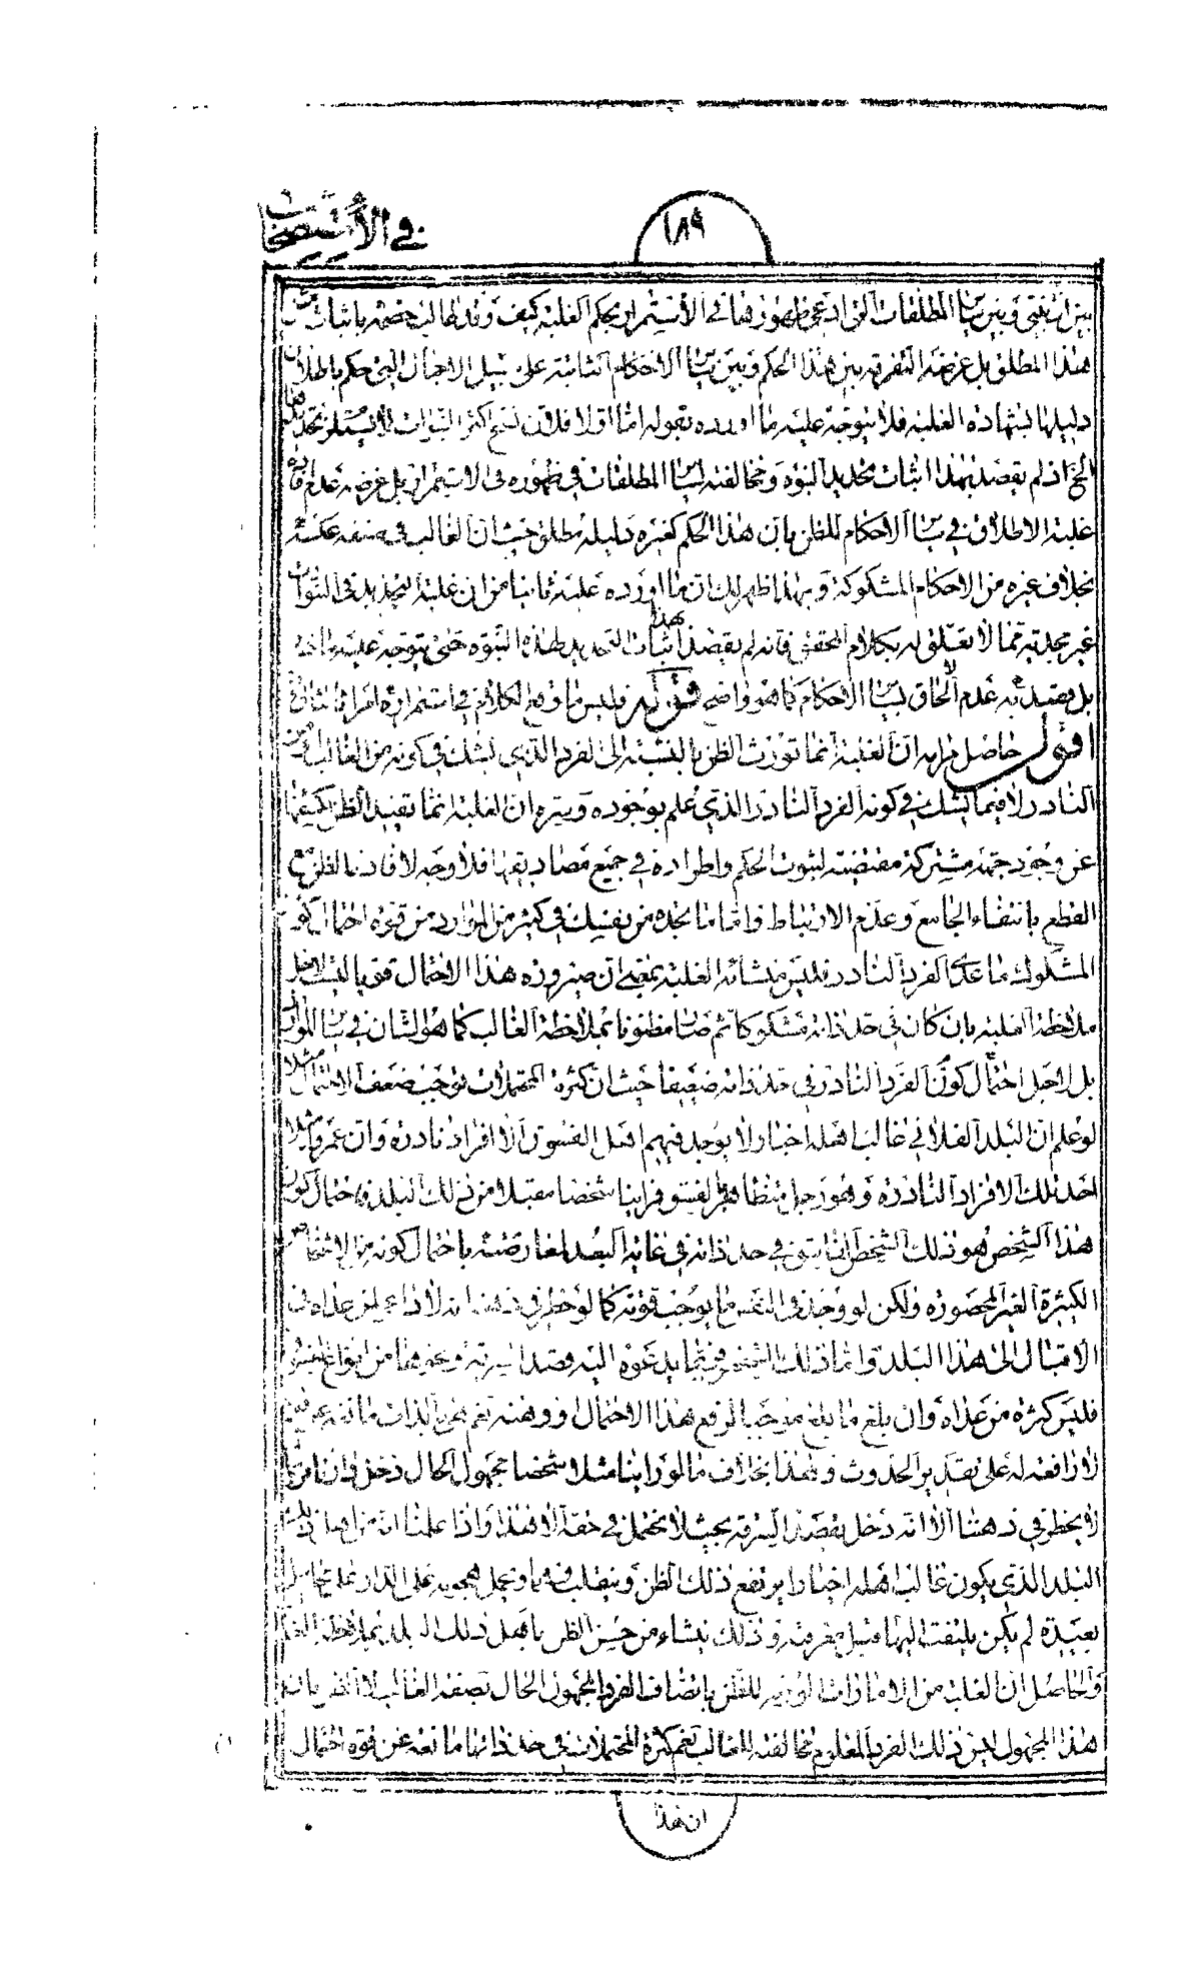 في الاستصحاب
١٨٩
بين ان يقتني وبين سائر المطلقات التي ادعى ظهورها في الاستمرار بحكم الغلبة كيف وقد طالب خصمه باثبات
هذا المطلق بل غرضه التفرقة بين هذا الحكم وبين سائر الاحكام الثابتة على سبيل الاجمال التي حكم باطلاق
دليلها بشهادة الغلبة فلا يتوجه عليه ما اورده بقوله اما اولا فلان نسخ اكثر النبوات لا يستلزم تحديدها
الخ اذ لم يقصد بهذا اثبات تحديد النبوة ومخالفته لسائر المطلقات في ظهوره في الاستمرار بل غرضه عدم افادة
غلبة الاطلاق في سائر الاحكام للظن بان هذا الحكم كغيره دليله مطلق حيث ان الغالب في صنفه عكسه
بخلاف غيره من الاحكام المشكوكة وبهذا ظهر لك ان ما اورده عليه ثانيا من ان غلبة التحديد في النبوات
غير مجدية مما لا تعلق له بكلام المحقق فانه لم يقصد بهذا اثبات التحديد لهذه النبوة حتى يتوجه عليه ما ذكر
بل قصد به عدم الحاق بسائر الاحكام كما هو واضح قوله فليس ما وقع الكلام في استمراره امرا ثالثا
اقول حاصل مرامه ان الغلبة انما تورث الظن بالنسبة الى الفرد الذي يشك في كونه من الغالب او من
النادر لا فيما يشك في كونه الفرد النادر الذي علم بوجوده وسره ان الغلبة انما تفيد الظن لكشفها
عن وجود جهة مشتركة مقتضية لثبوت الحكم واطراده في جميع مصاديقها فلا وجه لافادتها الظن مع
القطع بانتفاء الجامع وعدم الارتباط واما ما نجده من نفسك في كثير من الموارد من قوة احتمال كون
المشكوك ما عدى الفرد النادر فليس منشائه الغلبة بمعنى ان صيرورة هذا الاحتمال قويا ليست لاجل
ملاحظة الغلبة بان كان في حد ذاته مشكوكا ثم صار مظنونا بملاحظة الغالب كما هو الشان في سائر الموارد
بل لاجل احتمال كون الفرد النادر في حد ذاته ضعيفا حيث ان كثرة المحتملات توجب ضعف الاحتمال مثلا
لو علم ان البلد الفلاني غالب اهله اخيار لا يوجد فيهم اهل الفسوق الا افراد نادرة وان عمروا مثلا
احد تلك الافراد النادرة وهو رجل متظاهر بالفسق فراينا شخصا مقبلا من ذلك البلد فاحتمال كون
هذا الشخص هو ذلك الشخص الفاسق في حد ذاته في غاية البعد لمعارضته باحتمال كونه من الاشخاص
الكثيرة الغير المحصورة ولكن لو وجد في النفس ما يوجب قوته كما لو خطر في ذهننا انه لا داعي لمن عداه في
الاقبال الى هذا البلد واما ذلك الشخص فربما يدعوه اليه قصد السرقة ونحوها من انواع الفسق
فليس كثرة من عداه وان بلغ ما بلغ موجبا لرفع هذا الاحتمال ووهنه نعم هي بالذات مانعة عن قوته
لا رافعة له على تقدير الحدوث وهذا بخلاف ما لو راينا مثلا شخصا مجهول الحال دخل دارنا من
لا يخطر في ذهننا الا انه دخل بقصد السرقة بحيث لا نحتمل في حقه الا هذا واذا علمنا انه من اهل ذلك
البلد الذي يكون غالب اهله اخيارا يرتفع ذلك الظن وينقلب وهما ونحمل هجومه على الدار على محامل
بعيدة لم يكن يلتفت اليها قبل معرفته وذلك ينشاء من حسن الظن باهل ذلك البلد بملاحظة الغلبة
والحاصل ان الغلبة من الامارات الموجبة للظن باتصاف الفرد المجهول الحال بصفة الغالب لا الظن بان
هذا المجهول ليس ذلك الفرد المعلوم مخالفته للغالب نعم كثرة المحتملات في حد ذاتها مانعة عن قوة احتمال
ان هذا